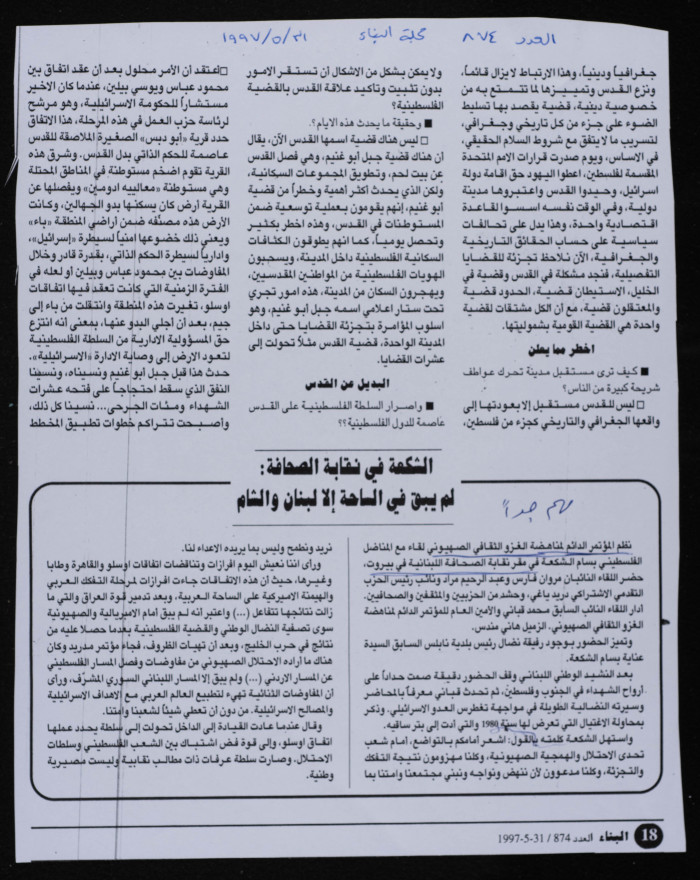 العدد ٨٧٤ مجلة البناء ٣١/٥/١٩٩٧
جغرافياً ودينياً، وهذا الارتباط لا يزال قائماً،
ونزع القدس وتمييزها لما تتمتع به من
خصوصية دينية، قضية يقصد بها تسليط
الضوء على جزء من كل تاريخي وجغرافي،
لتسريب ما لا يتفق مع شروط السلام الحقيقي،
في الاساس، ويوم صدرت قرارات الامم المتحدة
المقسمة لفلسطين، اعطوا اليهود حق اقامة دولة
اسرائيل، وحيدوا القدس واعتبروها مدينة
دولية، وفي الوقت نفسه اسسوا لقاعدة
اقتصادية واحدة، وهذا يدل على تحالفات
سياسية على حساب الحقائق التاريخية
والجغرافية، الآن نلاحظ تجزئة للقضايا
التفصيلية، فنجد مشكلة في القدس وقضية في
الخليل، الاستيطان قضية، الحدود قضية
والمعتقلون قضية، مع أن الكل مشتقات لقضية
واحدة هي القضية القومية بشموليتها.
اخطر مما يعلن
■ كيف ترى مستقبل مدينة تحرك عواطف
شريحة كبيرة من الناس؟
□ ليس للقدس مستقبل إلا بعودتها إلى
واقعها الجغرافي والتاريخي كجزء من فلسطين،
ولا يمكن بشكل من الاشكال أن تستقر الامور
بدون تثبيت وتأكيد علاقة القدس بالقضية
الفلسطينية؟
■ وحقيقة ما يحدث هذه الايام؟.
□ ليس هناك قضية اسمها القدس الآن، يقال
أن هناك قضية جبل أبو غنيم، وهي فصل القدس
عن بيت لحم، وتطويق المجموعات السكانية،
ولكن الذي يحدث أكثر أهمية وخطراً من قضية
أبو غنيم، إنهم يقومون بعملية توسعة ضمن
المستوطنات في القدس، وهذه اخطر بكثير
وتحصل يومياً، كما انهم يطوقون الكثافات
السكانية الفلسطينية داخل المدينة، ويسحبون
الهويات الفلسطينية من المواطنين المقدسيين،
ويهجرون السكان من المدينة، هذه امور تجري
تحت ستار اعلامي اسمه جبل أبو غنيم، وهو
اسلوب المؤامرة بتجزئة القضايا حتى داخل
المدينة الواحدة، قضية القدس مثلاً تحولت إلى
عشرات القضايا.
البديل عن القدس
■ واصرار السلطة الفلسطينية على القدس
عاصمة للدول الفلسطينية؟؟
□ اعتقد أن الأمر محلول بعد أن عقد اتفاق بين
محمود عباس ويوسي بيلين، عندما كان الاخير
مستشاراً للحكومة الاسرائيلية، وهو مرشح
لرئاسة حزب العمل في هذه المرحلة، هذا الاتفاق
حدد قرية «أبو ديس» الصغيرة الملاصقة للقدس
عاصمة للحكم الذاتي بدل القدس. وشرق هذه
القرية تقوم اضخم مستوطنة في المناطق المحتلة
وهي مستوطنة «معاليه ادوميم» ويفصلها عن
القرية أرض كان يسكنها بدو الجهالين، وكانت
الأرض هذه مصنّفه ضمن أراضي المنطقة «باء»
ويعني ذلك خضوعها امنياً لسيطرة «إسرائيل»،
وادارياً لسيطرة الحكم الذاتي، بقدرة قادر وخلال
المفاوضات بين محمود عباس وبيلين أو لعله في
الفترة الزمنية التي كانت تعقد فيها اتفاقات
اوسلو، تغيرت هذه المنطقة وانتقلت من باء إلى
جيم، بعد أن أجلي البدو عنها، بمعنى أنه انتزع
حق المسؤولية الادارية من السلطة الفلسطينية
لتعود الارض إلى وصاية الادارة «الاسرائيلية».
حدث هذا قبل جبل أبو غنيم ونسيناه، ونسينا
النفق الذي سقط احتجاجاً على فتحه عشرات
الشهداء ومئات الجرحى... نسينا كل ذلك،
وأصبحت تتراكم خطوات تطبيق المخطط
الشكعة في نقابة الصحافة:
لم يبق في الساحة إلا لبنان والشام
مهم جداً
نظم المؤتمر الدائم لمناهضة الغزو الثقافي الصهيوني لقاء مع المناضل
الفلسطيني بسام الشكعة في مقر نقابة الصحافة اللبنانية في بيروت،
حضر اللقاء النائبان مروان فارس وعبد الرحيم مراد ونائب رئيس الحزب
التقدمي الاشتراكي دريد ياغي، وحشد من الحزبيين والمثقفين والصحافيين.
أدار اللقاء النائب السابق محمد قباني والأمين العام للمؤتمر الدائم لمناهضة
الغزو الثقافي الصهيوني. الزميل هاني مندس.
وتميز الحضور بوجود رفيقة نضال رئيس بلدية نابلس السابق السيدة
عناية بسام الشكعة.
بعد النشيد الوطني اللبناني وقف الحضور دقيقة صمت حداداً على
أرواح الشهداء في الجنوب وفلسطين، ثم تحدث قباني معرفاً بالمحاضر
وسيرته النضالية الطويلة في مواجهة تغطرس العدو الاسرائيلي. وذكر
بمحاولة الاغتيال التي تعرض لها سنة 1980 والتي أدت إلى بتر ساقيه.
واستهل الشكعة كلمته بالقول: اشعر أمامكم بالتواضع، أمام شعب
تحدى الاحتلال والهمجية الصهيونية، وكلنا مهزومون نتيجة التفكك
والتجزئة، وكلنا مدعوون لأن ننهض ونواجه ونبني مجتمعنا وامتنا بما
نريد ونطمح وليس بما يريده الاعداء لنا.
ورأى اننا نعيش اليوم افرازات وتناقضات اتفاقات اوسلو والقاهرة وطابا
وغيرها، حيث أن هذه الاتفاقات جاءت افرازات لمرحلة التفكك العربي
والهيمنة الاميركية على الساحة العربية، وبعد تدمير قوة العراق والتي ما
زالت نتائجها تتفاعل (...) واعتبر انه لم يبق أمام الامبريالية والصهيونية
سوى تصفية النضال الوطني والقضية الفلسطينية بعدما حصلا عليه من
نتائج في حرب الخليج، وبعد أن تهيات الظروف، فجاء مؤتمر مدريد وكان
هناك ما أراده الاحتلال الصهيوني من مفاوضات وفصل المسار الفلسطيني
عن المسار الاردني (...) ولم يبق إلا المسار اللبناني السوري المشرّف، ورأى
أن المفاوضات الثنائية تهيء لتطبيع العالم العربي مع الاهداف الاسرائيلية
والمصالح الاسرائيلية. من دون أن تعطي شيئاً لشعبنا وامتنا.
وقال عندما عادت القيادة إلى الداخل تحولت إلى سلطة يحدد عملها
اتفاق اوسلو، وإلى قوة فض اشتباك بين الشعب الفلسطيني وسلطات
الاحتلال. وصارت سلطة عرفات ذات مطالب نقابية وليست مصيرية
وطنية.
18 البناء العدد 874 / 31-5-1997